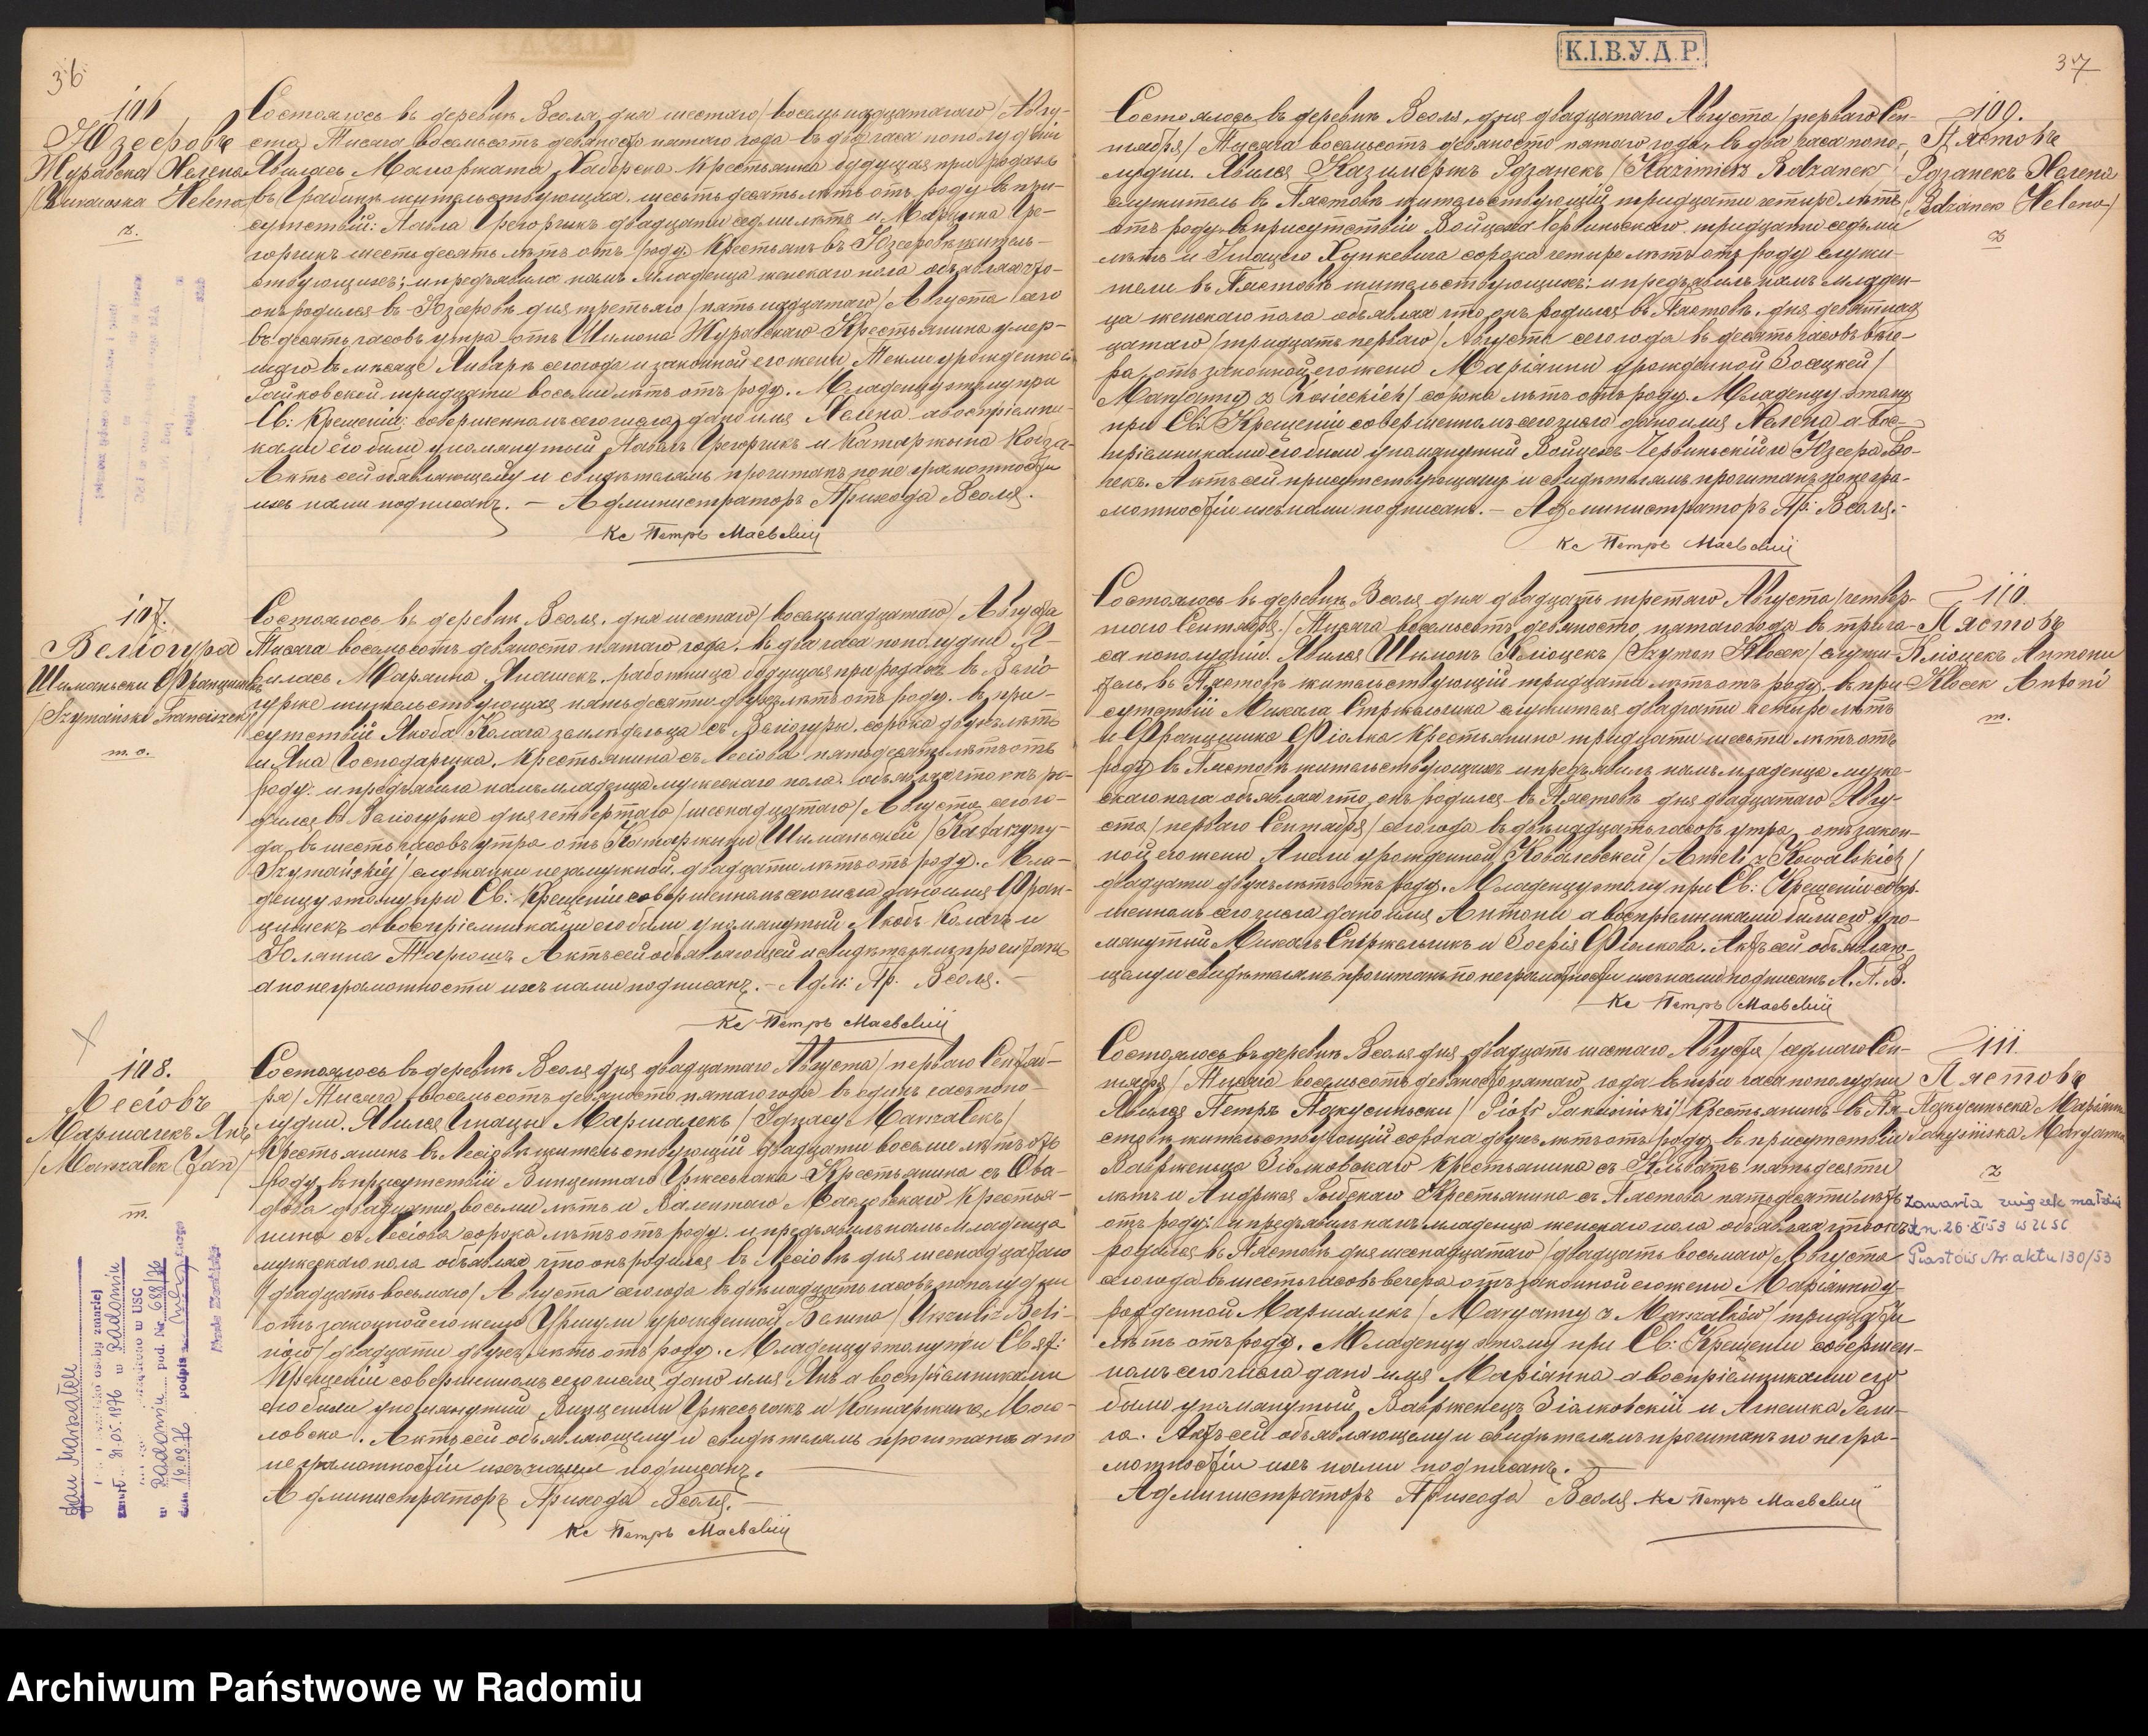 36
106
Юзефовъ
Журавска Хелена
/Żurawska Helena/
ż.
Состоялось въ деревнѣ Всоля, дня шестаго /восемьнадцатаго/ Авгу-
ста Тысяча восемьсотъ девяносто пятаго года въ два часа пополудни
Явилась Малгоржата Крестьянка будущая при родахъ
въ жительствующая, шестьдесять лѣтъ отъ роду въ при-
сутствіи: Павла двадцати седьми лѣтъ и Марцина Гре-
горчикъ шестьдесять лѣтъ отъ роду Крестьянъ въ Юзефовѣ житель-
ствующихъ; и предъявила намъ младенца женскаго пола объявляя что
онъ родился въ Юзефовѣ дня третьяго /пятьнадцатаго/ Августа сего
въ десять часовъ утра отъ Шимона Журавскаго Крестьянина умер-
шаго въ мѣсяцѣ Январѣ сего года и законной его жены Текли урожденной
Гайковской тридцати восьми лѣтъ отъ роду. Младенцу этому при
Св: Крещеніи совершенномъ сего числа дано имя Хелена а воспріемни-
ками его были упомянутый Павелъ Грегорчикъ и Катаржына
Актъ сей объявляющему и свидѣтелямъ прочитанъ по неграмотности
ихъ нами подписанъ. — Администраторъ Прихода Всоля.
Кс Петръ Маевскій
107.
Велiогура
Шиманьски Францишекъ
/Szymański Franciszek/
m. c.
Состоялось въ деревнѣ Всоля, дня шестаго /восемьнадцатаго/ Августа
Тысяча восемьсотъ девяносто пятаго года, въ два часа пополудни Я-
вилась Марянна работница будущая при родахъ въ Велiо-
гурже жительствующая пятьдесяти двухъ лѣтъ отъ роду, въ при-
сутствіи Якоба Колача земледѣльца съ Велiогуры, сорока двухъ лѣтъ
и Яна Господарчика, Крестьянина съ Лесiова пятьдесяти лѣтъ отъ
роду: и предъявила намъ младенца мужескаго пола объявляя что онъ ро-
дился въ Велiогурже дня четвертаго /шестнадцатаго/ Августа сего го-
да въ шесть часовъ утра отъ Катаржины Шиманьской /Katarzyny
Szymańskiéj/ служанки незамужной, двадцати лѣтъ отъ роду. Мла-
денцу этому при Св: Крещеніи совершенномъ сего числа дано имя Фран-
цишекъ а воспріемниками его были упомянутый Якобъ Колачъ и
Юлянна Актъ сей объявляющей и свидѣтелямъ прочитанъ
а по неграмотности ихъ нами подписанъ. — Адм: Пр. Всоля. —
Кс Петръ Маевскій
108.
Лесiовъ
Маршалекъ Янъ
/Marszałek Jan/
m.
Состоялось въ деревнѣ Всоля дня двадцатаго Августа /перваго Сентяб-
ря/ Тысяча восемьсотъ девяносто пятаго года въ одинъ часъ попо-
лудни. Явился Игнацы Маршалекъ /Ignacy Marszałek/
Крестьянинъ въ Лесiовѣ жительствующій двадцати восьми лѣтъ отъ
роду, въ присутствіи Винцентаго Гржесьчака Крестьянина съ
двадцати восьми лѣтъ и Валентаго Крестья-
нина съ Лесiова сорока лѣтъ отъ роду, и предъявилъ намъ младенца
мужескаго пола объявляя что онъ родился въ Лесiовѣ дня шестнадцатаго
/двадцать восьмаго/ Августа сего года въ двѣнадцать часовъ пополудни
отъ законной его жены Уршули урожденной Белина /Urszuli z Beli-
nów/ двадцати двухъ лѣтъ отъ роду. Младенцу этому при Свят:
Крещеніи совершенномъ сего числа дано имя Янъ а воспріемниками
его были упомянутый Винценты Гржесьчакъ и Катаржина
Актъ сей объявляющему и свидѣтелямъ прочитанъ а по
неграмотности ихъ нами подписанъ.
Администраторъ Прихода Всоля. —
Кс Петръ Маевскій
Jan Marszałek
zmarł 31.05.1976 w Radomiu
w Radomiu pod. Nr 688/76
dnia 10.09.76 podpis
К.І.В.У.Д.Р.
37
109.
Пястовъ
Рдзанекъ Хелена
/Rdzanek Helena/
ż
Состоялось въ деревнѣ Всоля, дня двадцатаго Августа /перваго Сен-
тября/ Тысяча восемьсотъ девяносто пятаго года, въ два часа попо-
лудни. Явился Казимержъ Рдзанекъ /Kazimierz Rdzanek/
служитель въ Пястовѣ жительствующій тридцати четыре лѣтъ
отъ роду, въ присутствіи Войцеха Червиньскаго тридцати седьми
лѣтъ и Игнацего сорока четыре лѣтъ отъ роду служи-
тели въ Пястовѣ жительствующихъ: и предъявилъ намъ младен-
ца женскаго пола объявляя что онъ родился въ Пястовѣ, дня девятнад-
цатаго /тридцать перваго/ Августа сего года въ десять часовъ вече-
ра, отъ законной его жены Марiанны урожденной Зосецкей /
Maryanny z Zosieckich/ сорока лѣтъ отъ роду. Младенцу этому
при Св: Крещеніи совершенномъ сего числа дано имя Хелена а вос-
пріемниками его были упомянутый Войцехъ Червиньскій и Юзефа Бо-
чекъ. Актъ сей присутствующему и свидѣтелямъ прочитанъ по негра-
мотности ихъ нами подписанъ. — Администраторъ Пр: Всоля. —
Кс Петръ Маевскій
110.
Пястовъ
Клiоцекъ Антони
Klocek Antoni
m.
Состоялось въ деревнѣ Всоля дня двадцать третьяго Августа /четвер-
таго Сентября./ Тысяча восемьсотъ девяносто пятаго года въ три ча-
са пополудни. Явился Шимонъ Клiоцекъ /Szymon Klocek/ служи-
тель въ Пястовѣ жительствующій тридцати лѣтъ отъ роду, въ при-
сутствіи Михала Стржельчика служителя двадцати четыре лѣтъ
и Францишка Фiолка Крестьянина тридцати шести лѣтъ отъ
роду въ Пястовѣ жительствующихъ и предъявилъ намъ младенца муже-
скаго пола объявляя что онъ родился въ Пястовѣ дня двадцатаго Авгу-
ста /перваго Сентября/ сего года въ двѣнадцать часовъ утра отъ закон-
ной его жены Анели урожденной Ковалевской /Aneli z Kowalskich/
двадцати двухъ лѣтъ отъ роду. Младенцу этому при Св: Крещеніи совер-
шенномъ сего числа дано имя Антони а воспріемниками были его упо-
мянутый Михалъ Стржельчикъ и Зофiя Фiолкова. Актъ сей объявляю-
щему и свидѣтелямъ прочитанъ по неграмотности ихъ нами подписанъ А. П. В.
Кс Петръ Маевскій
111
Пястовъ
Марiанна
Maryanna
ż
Zawarła związek małżeń
dn. 26 XI 53 w USC
Piastów Nr aktu 130/53
Состоялось въ деревнѣ Всоля дня двадцать шестаго Августа /седьмаго Сен-
тября/ Тысяча восемьсотъ девяносто пятаго года въ три часа пополудни
Явился Петръ /Piotr Крестьянинъ въ Пя-
стовѣ жительствующій сорока двухъ лѣтъ отъ роду въ присутствіи
Ваврженьца Зiолковскаго Крестьянина съ пятьдесяти
лѣтъ и Андржея Крестьянина съ Пястова пятьдесяти лѣтъ
отъ роду: и предъявилъ намъ младенца женскаго пола объявляя что онъ
родился въ Пястовѣ дня шестнадцатаго /двадцать восьмаго/ Августа
сего года въ шесть часовъ вечера отъ законной его жены Марiанны у-
рожденной Маршалекъ /Maryanny z Marszałków/ тридцати
лѣтъ отъ роду. Младенцу этому при Св: Крещеніи совершен-
номъ сего числа дано имя Марiанна а воспріемниками его
были упомянутый Вавржинецъ Зiолковскій и Агнешка
Актъ сей объявляющему и свидѣтелямъ прочитанъ по негра-
мотности ихъ нами подписанъ.
Администраторъ Прихода Всоля Кс Петръ Маевскій
Archiwum Państwowe w Radomiu